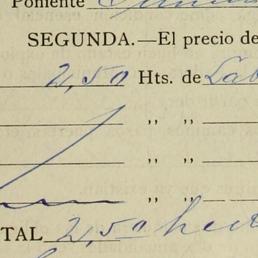 Poniente
SEGUNDA.—El precio de
2,50 Hts. de Lab
,, ,,
,, ,,
,, ,,
TAL 2,50 hect